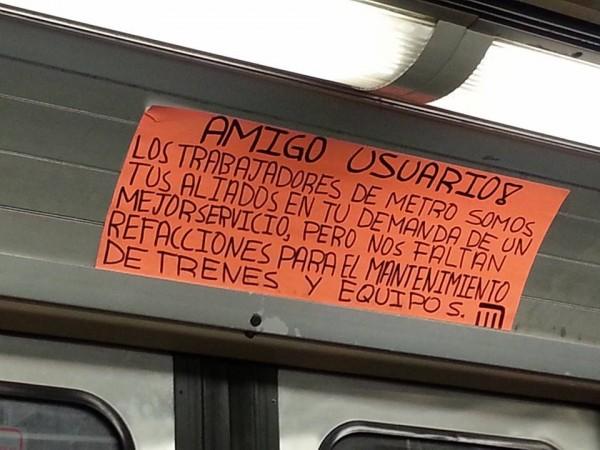 AMIGO USUARIO!
LOS TRABAJADORES DE METRO SOMOS
TUS ALIADOS EN TU DEMANDA DE UN
MEJOR SERVICIO, PERO NOS FALTAN
REFACCIONES PARA EL MANTENIMIENTO
DE TRENES Y EQUIPOS.